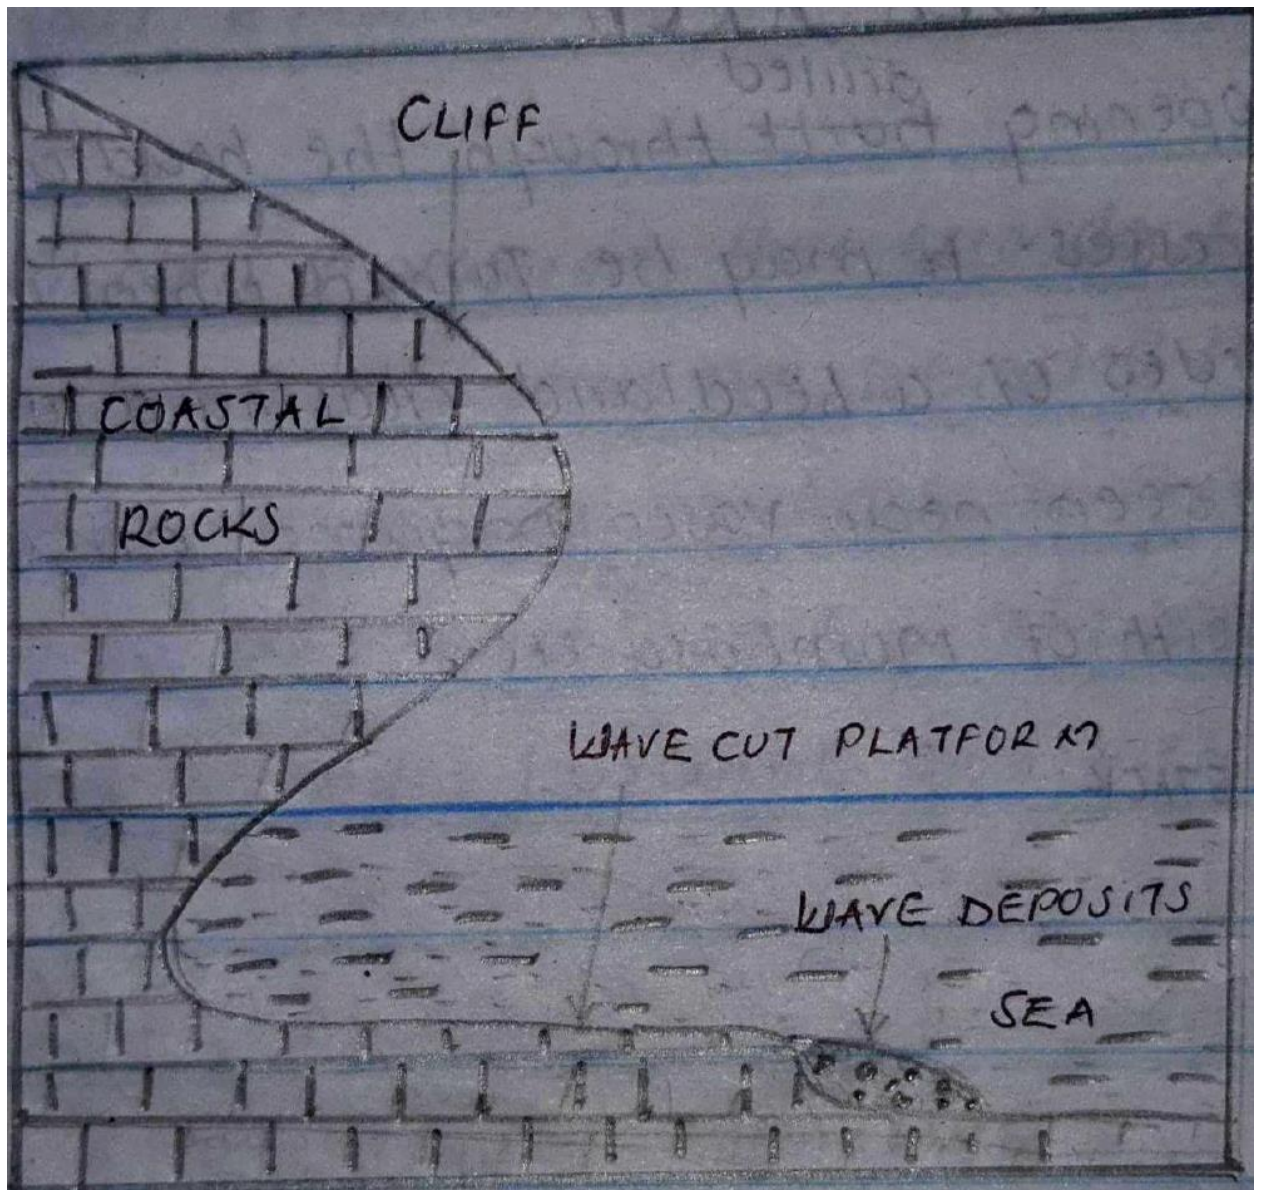 CLIFF
COASTAL
ROCKS
WAVE CUT PLATFORM
WAVE DEPOSITS
SEA